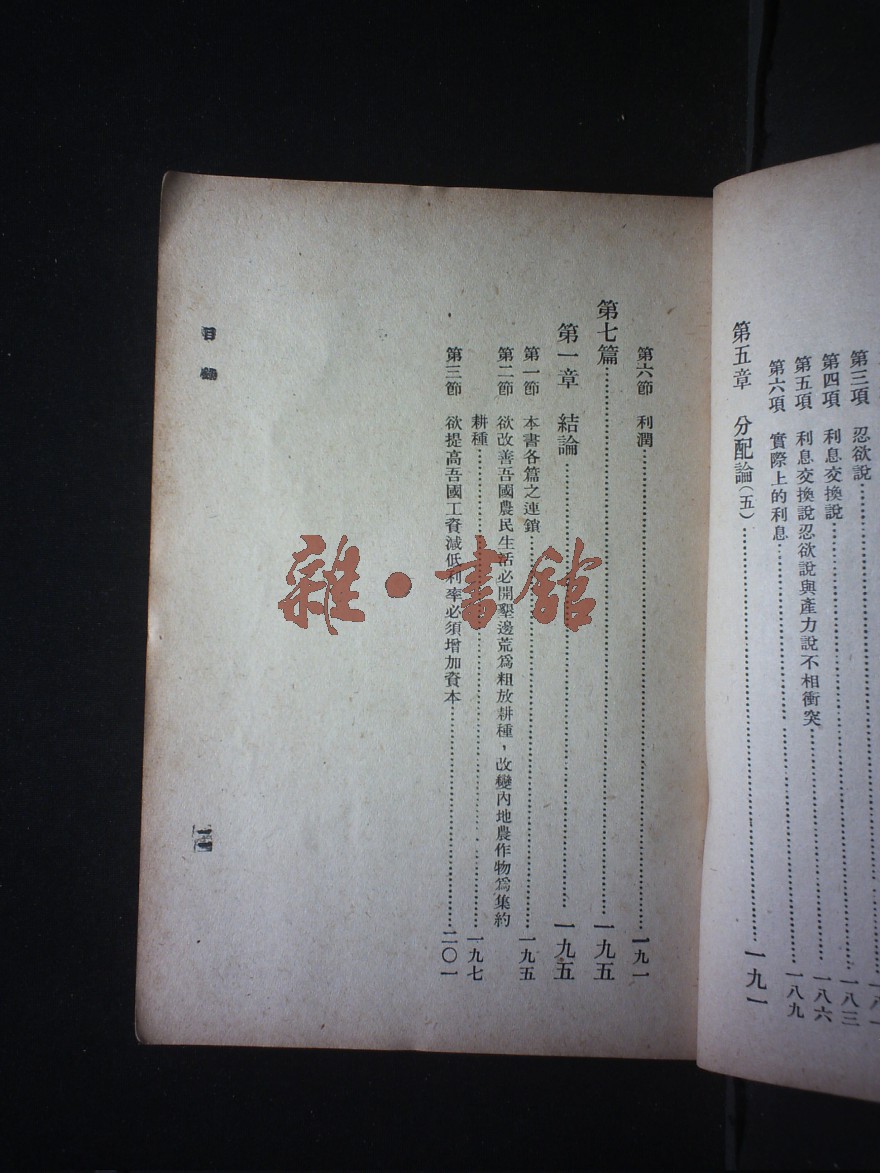 第三項 忍欲說…一八三
第四項 利息交換說…一八六
第五項 利息交換說忍欲說與產力說不相衝突…一八九
第六項 實際上的利息
第五章 分配論(五)…一九一
第六節 利潤…一九一
第七篇…一九五
第一章 結論…一九五
第一節 本書各篇之連鎖…一九五
第二節 欲改善吾國農民生活必開墾邊荒爲粗放耕種,改變內地農作物爲集約
耕種…一九七
第三節 欲提高吾國工資減低利率必須增加資本…二〇一
目錄
雜·書館